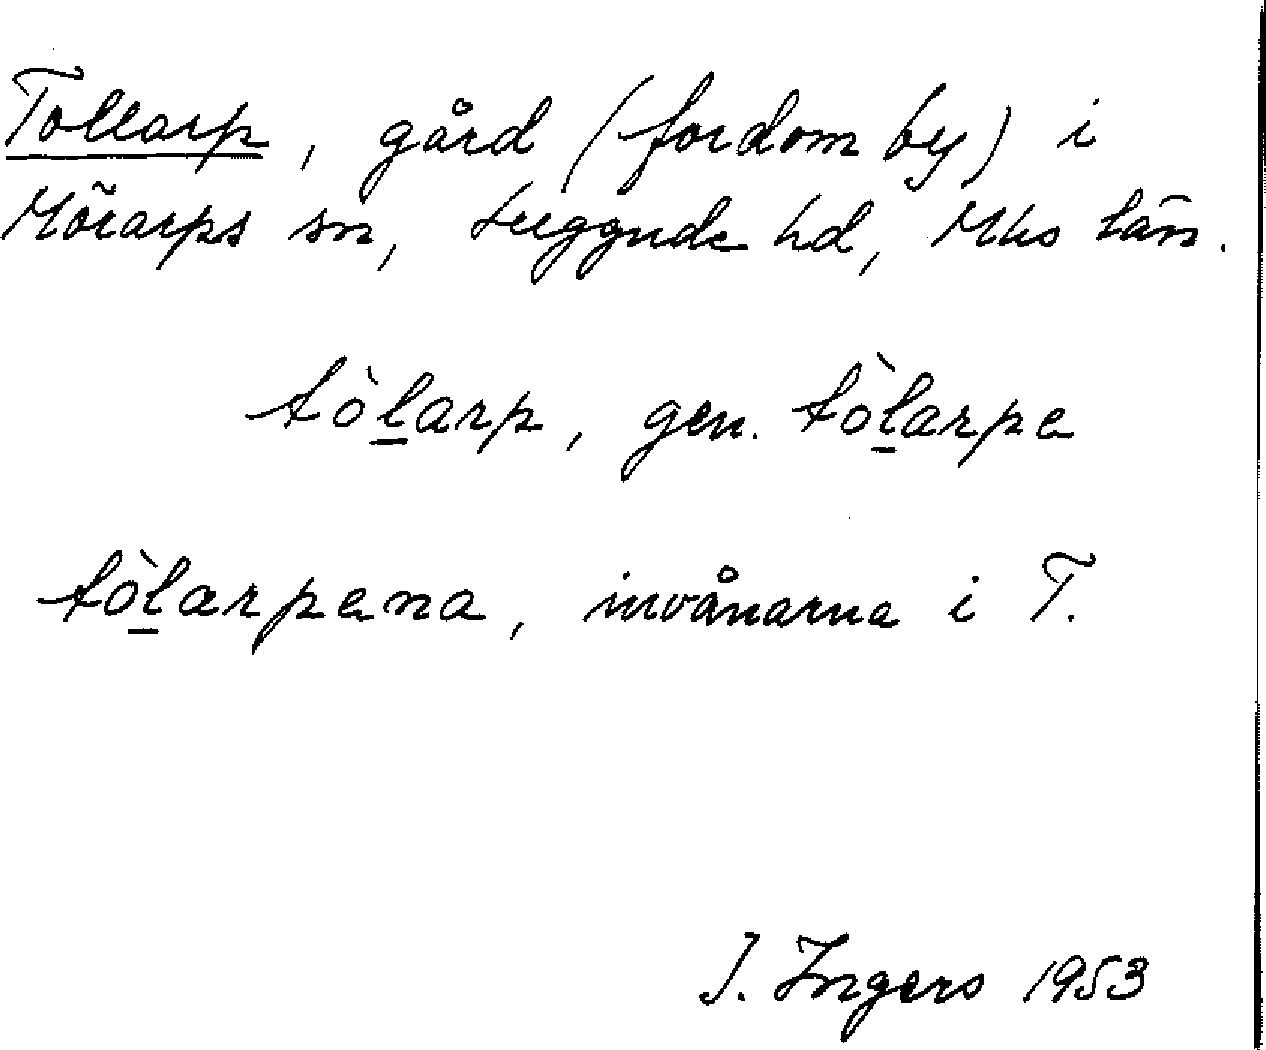 Tollarp, gård (fordom by) i
Mörarps sn, Luggude hd, Mhs län.
tòḻarp, gen. tòḻarpa
tòḻarpana, invånarna i T.
I. Ingers 1953